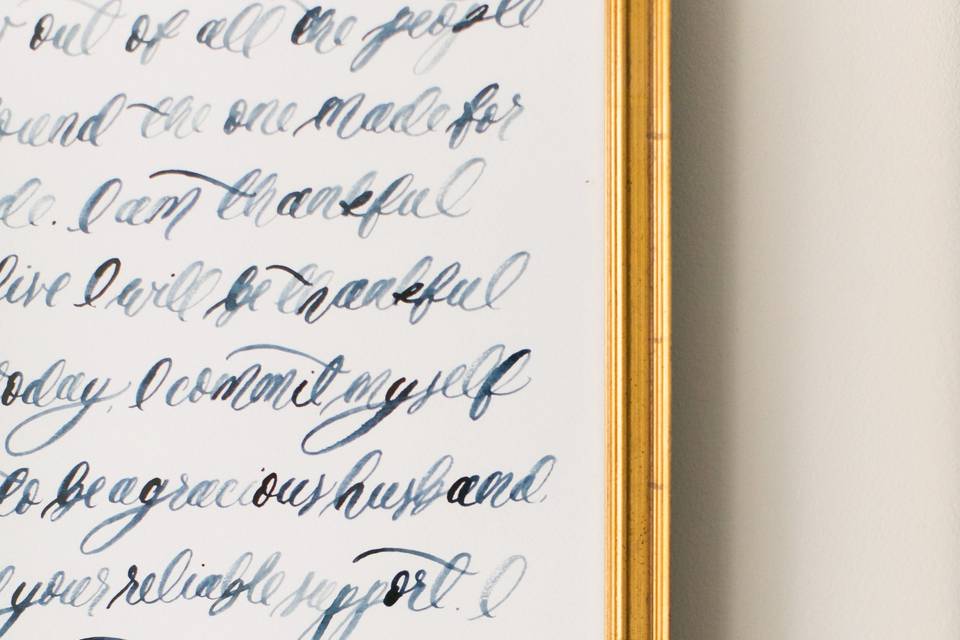 out of all the people
ound the one made for
de. I am thankful
live I will be thankful
today, I commit myself
to be a gracious husband,
your reliable support. I